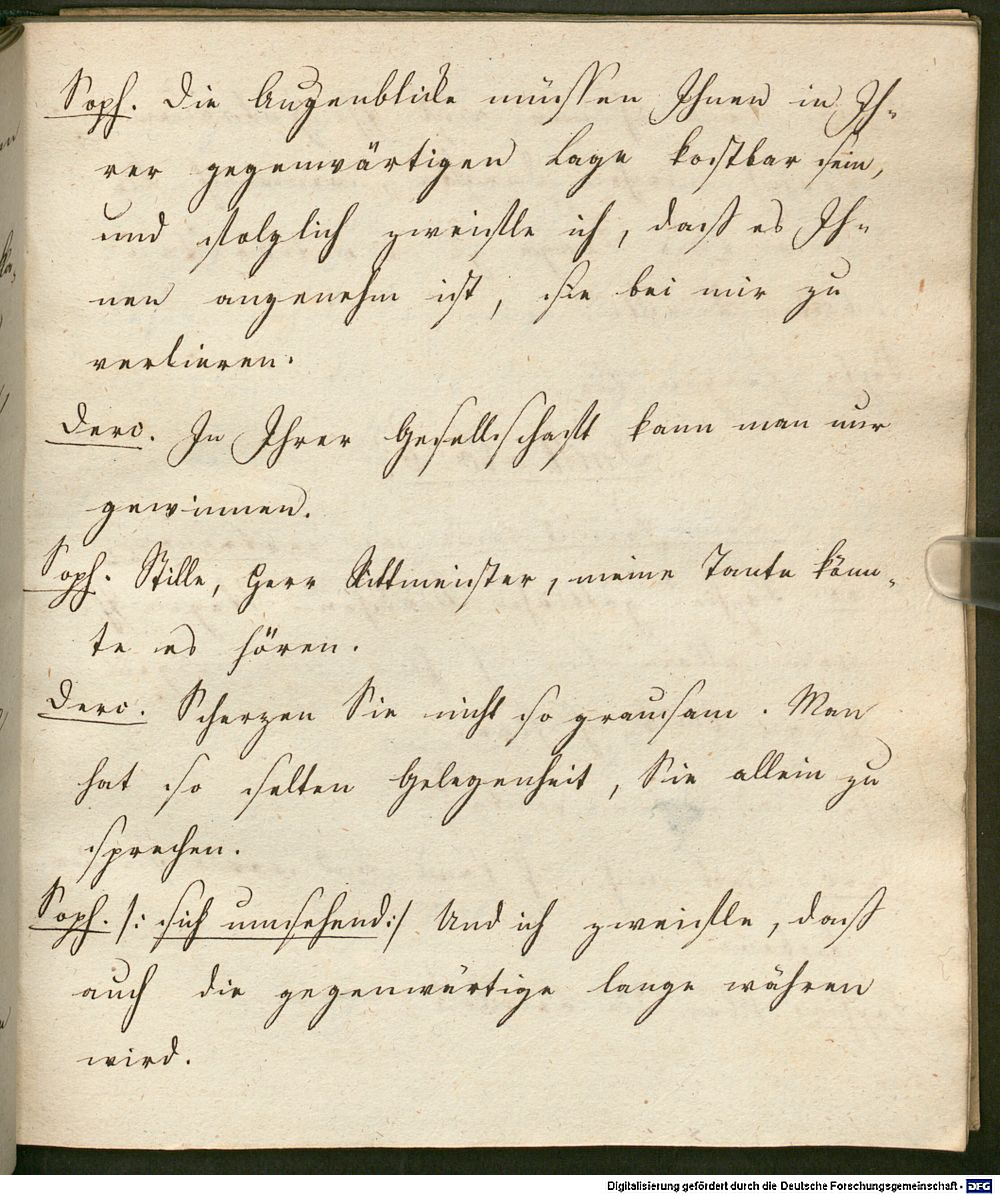 Soph. Die Augenblicke müssen Ihnen in Ih-
rer gegenwärtigen Lage kostbar sein,
und folglich zweifle ich, dass es Ih-
nen angenehm ist, sie bei mir zu
verlieren.
Derv. In Ihrer Gesellschaft kann man nur
gewinnen.
Soph. Stille, Herr Rittmeister, meine Tante könn-
te es hören.
Derv. Scherzen Sie nicht so grausam. Man
hat so selten Gelegenheit, Sie allein zu
sprechen.
Soph. /: sich umsehend:/ Und ich zweifle, dass
auch die gegenwärtige lange währen
wird.
Digitalisierung gefördert durch die Deutsche Forschungsgemeinschaft - DFG